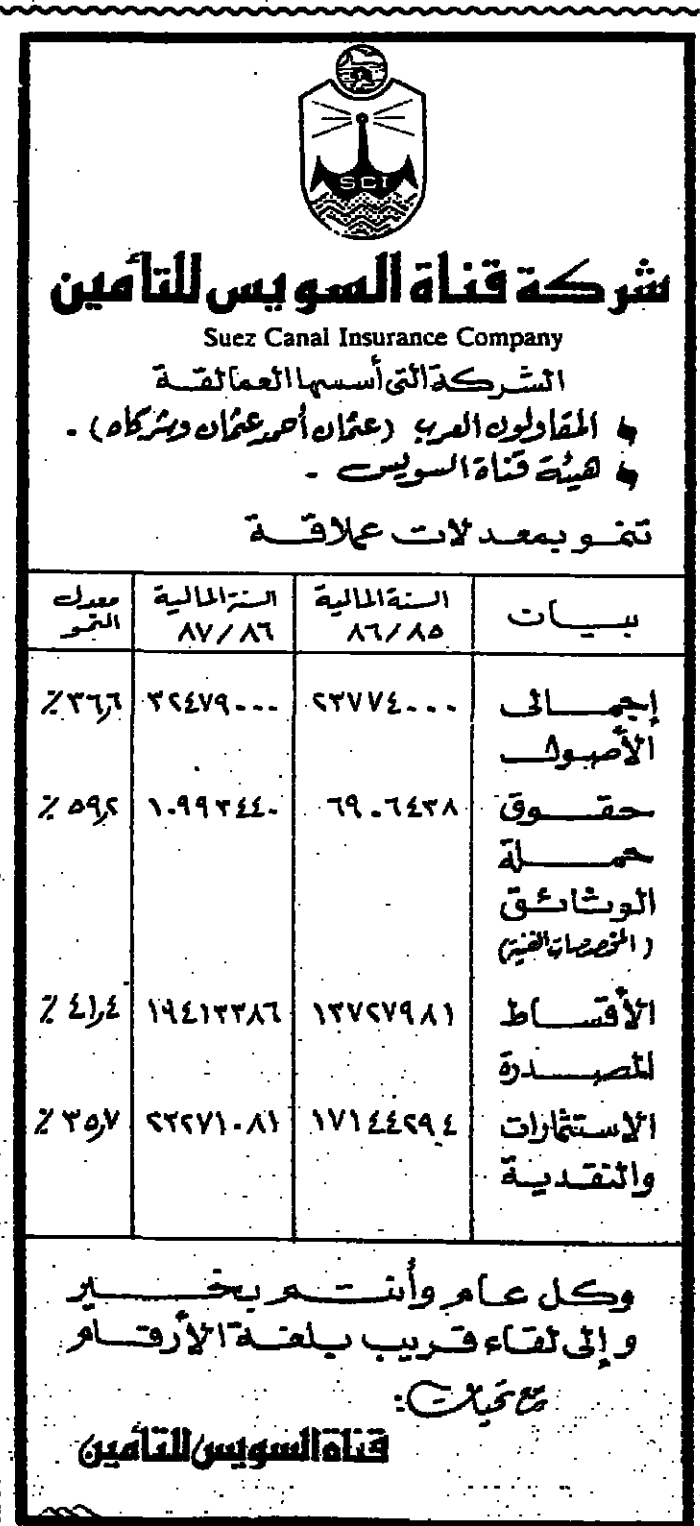 SCI
شركة قناة السويس للتأمين
Suez Canal Insurance Company
الشركة التى أسسها العمالقة
المقاولون العرب (عثمان أحمد عثمان وشركاه) .
هيئة قناة السويس .
تنمو بمعدلات عملاقة
بيـــات السنة المالية ٨٦/٨٥ السنة المالية ٨٧/٨٦ معدل النمو
إجمالى ٢٣٧٧٤٠٠٠ ٣٢٤٧٩٠٠٠ ٣٦,٦٪
الأصول
حقوق ٦٩٠٦٤٣٨ ١٠٩٩٣٤٤٠ ٥٩,٢٪
حملة
الوثائق
(المخصصات الفنية)
الأقساط ١٣٧٢٧٩٨١ ١٩٤١٣٣٨٦ ٤١,٤٪
المصدرة
الاستثمارات ١٧١٤٤٢٩٤ ٢٣٢٧١٠٨١ ٣٥,٧٪
والنقدية
وكل عام وأنتم بخير
وإلى لقاء قريب بلغة الأرقام
مع تحيات:
قناة السويس للتأمين